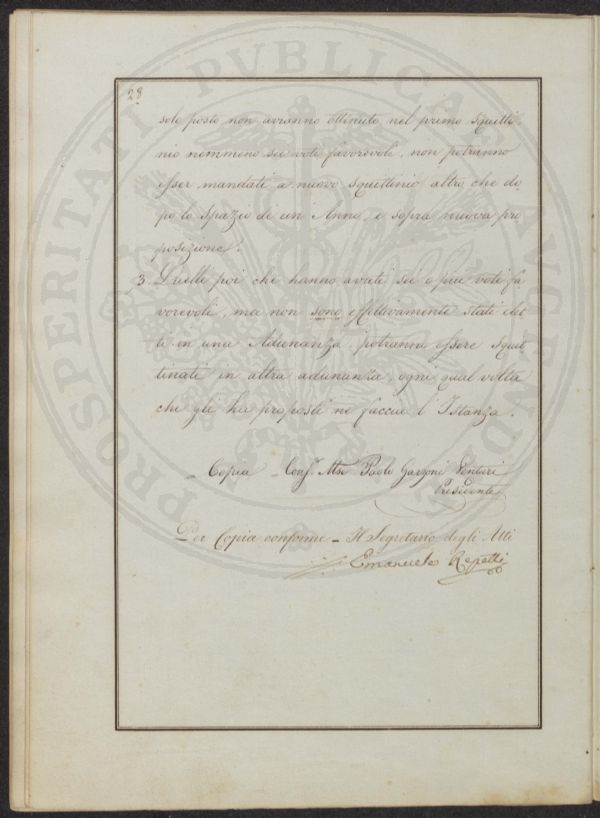 28
solo posto non avranno ottenuto nel primo Squitti-
nio nemmeno sei voti favorevoli, non potranno
esser mandati a nuovo squittinio altro che do
po lo Spazio di un Anno, e sopra nuova pro
posizione.
3. Quelli poi che hanno avuti sei o più voti fa
vorevoli, ma non sono effettivamente stati elet
ti in una Adunanza, potranno essere squit
tinati in altra adunanza, ogni qual volta
chi gli ha proposti ne faccia l'Istanza.
Copia Paolo Garzoni Venturi
Presidente
Per Copia conforme - Il Segretario degli Atti
Emanuele Repetti
PROSPERITATI PUBLICAE AUGENDAE